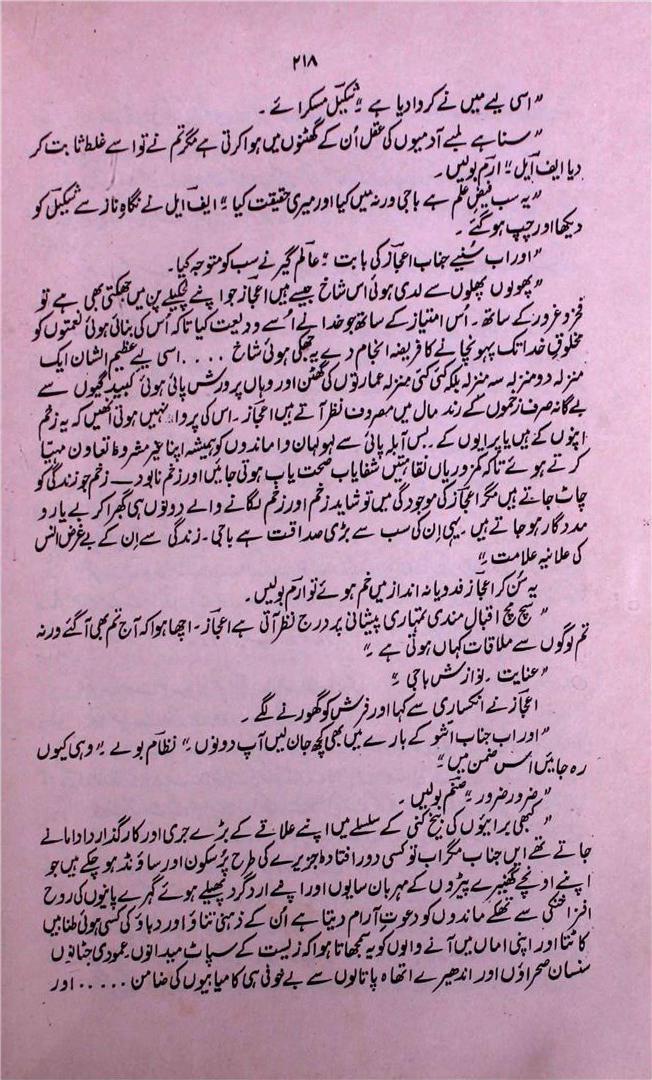 ۲۱۸
"اسی لیے میں نے کروا دیا ہے۔" شکیل مسکرائے۔
"سنا ہے لمبے آدمیوں کی عقل اُن کے گھٹنوں میں ہوا کرتی ہے مگر تم نے تو اسے غلط ثابت کر
دیا ایف ایل۔" ارم بولیں۔
"یہ سب فیضِ علم ہے باجی ورنہ میں کیا اور میری حقیقت کیا۔" ایف ایل نے نگاہِ ناز سے شکیل کو
دیکھا اور چپ ہو گئے۔
"اور اب سُنیے جناب اعجاز کی بابت۔" عالم گیر نے سب کو متوجہ کیا۔
"پھولوں پھلوں سے لدی ہوئی اُس شاخ جیسے ہیں اعجاز جو اپنے لچکیلے پن میں جھکتی بھی ہے تو
فخر و غرور کے ساتھ۔ اُس امتیاز کے ساتھ جو خدا نے اُسے ودیعت کیا تاکہ اُس کی بنائی ہوئی نعمتوں کو
مخلوقِ خدا تک پہونچانے کا فریضہ انجام دے یہ جھکی ہوئی شاخ .... اسی لیے عظیم الشان ایک
منزلہ دو منزلہ سہ منزلہ بلکہ کئی کئی منزلہ عمارتوں کی گھٹن اور وہاں پرورش پائی ہوئی کبیدگیوں سے
بے گانہ صرف زخموں کے اند مال میں مصروف نظر آتے ہیں اعجاز۔ اس کی پروا نہیں ہوتی اُنھیں کہ یہ زخم
اپنوں کے ہیں یا پرایوں کے۔ بس آبلہ پائی سے لہولہان واماندوں کو ہمیشہ اپنا غیر مشروط تعاون مہیا
کرتے ہوئے تاکہ کمزوریاں نقاہتیں شفایاب صحت یاب ہوتی جائیں اور زخم نابود ـــ زخم جو زندگی کو
چاٹ جاتے ہیں مگر اعجاز کی موجودگی میں تو شاید زخم اور زخم لگانے والے دونوں ہی گھبرا کر بے یار و
مددگار ہو جاتے ہیں۔ یہی اِن کی سب سے بڑی صداقت ہے باجی۔ زندگی سے اِن کے بے غرض انس
کی علانیہ علامت۔"
یہ سُن کر اعجاز فدویانہ انداز میں خم ہوئے تو ارم بولیں۔
"سچ مچ اقبال مندی تمہاری پیشانی پر درج نظر آتی ہے اعجاز۔ اچھا ہوا کہ آج تم بھی آ گئے ورنہ
تم لوگوں سے ملاقات کہاں ہوتی ہے۔"
"عنایت۔ نوازش باجی۔"
اعجاز نے انکساری سے کہا اور فرش کو گھورنے لگے۔
"اور اب جناب اشو کے بارے میں بھی کچھ جان لیں آپ دونوں۔" نظام بولے۔ "وہی کیوں
رہ جائیں اس ضمن میں۔"
"ضرور ضرور۔" صنم بولیں۔
"کبھی برائیوں کی بیخ کنی کے سلسلے میں اپنے علاقے کے بڑے جری اور کارگذار دادا مانے
جاتے تھے ایں جناب مگر اب تو کسی دور افتادہ جزیرے کی طرح پُرسکون اور ساؤنڈ ہو چکے ہیں جو
اپنے اونچے گھنیرے پیڑوں کے مہربان سایوں اور اپنے اردگرد پھیلے ہوئے گہرے پانیوں کی روح
افزا خنکی سے تھکے ماندوں کو دعوتِ آرام دیتا ہے اُن کے ذہنی تناؤ اور دباؤ کی کسی ہوئی طنابیں
کاٹتا اور اپنی اماں میں آنے والوں کو یہ سمجھاتا ہوا کہ زیست کے سپاٹ میدانوں عمودی چٹانوں
سنسان صحراؤں اور اندھیرے اتھاہ پاتالوں سے بے خوفی ہی کامیابیوں کی ضامن ..... اور